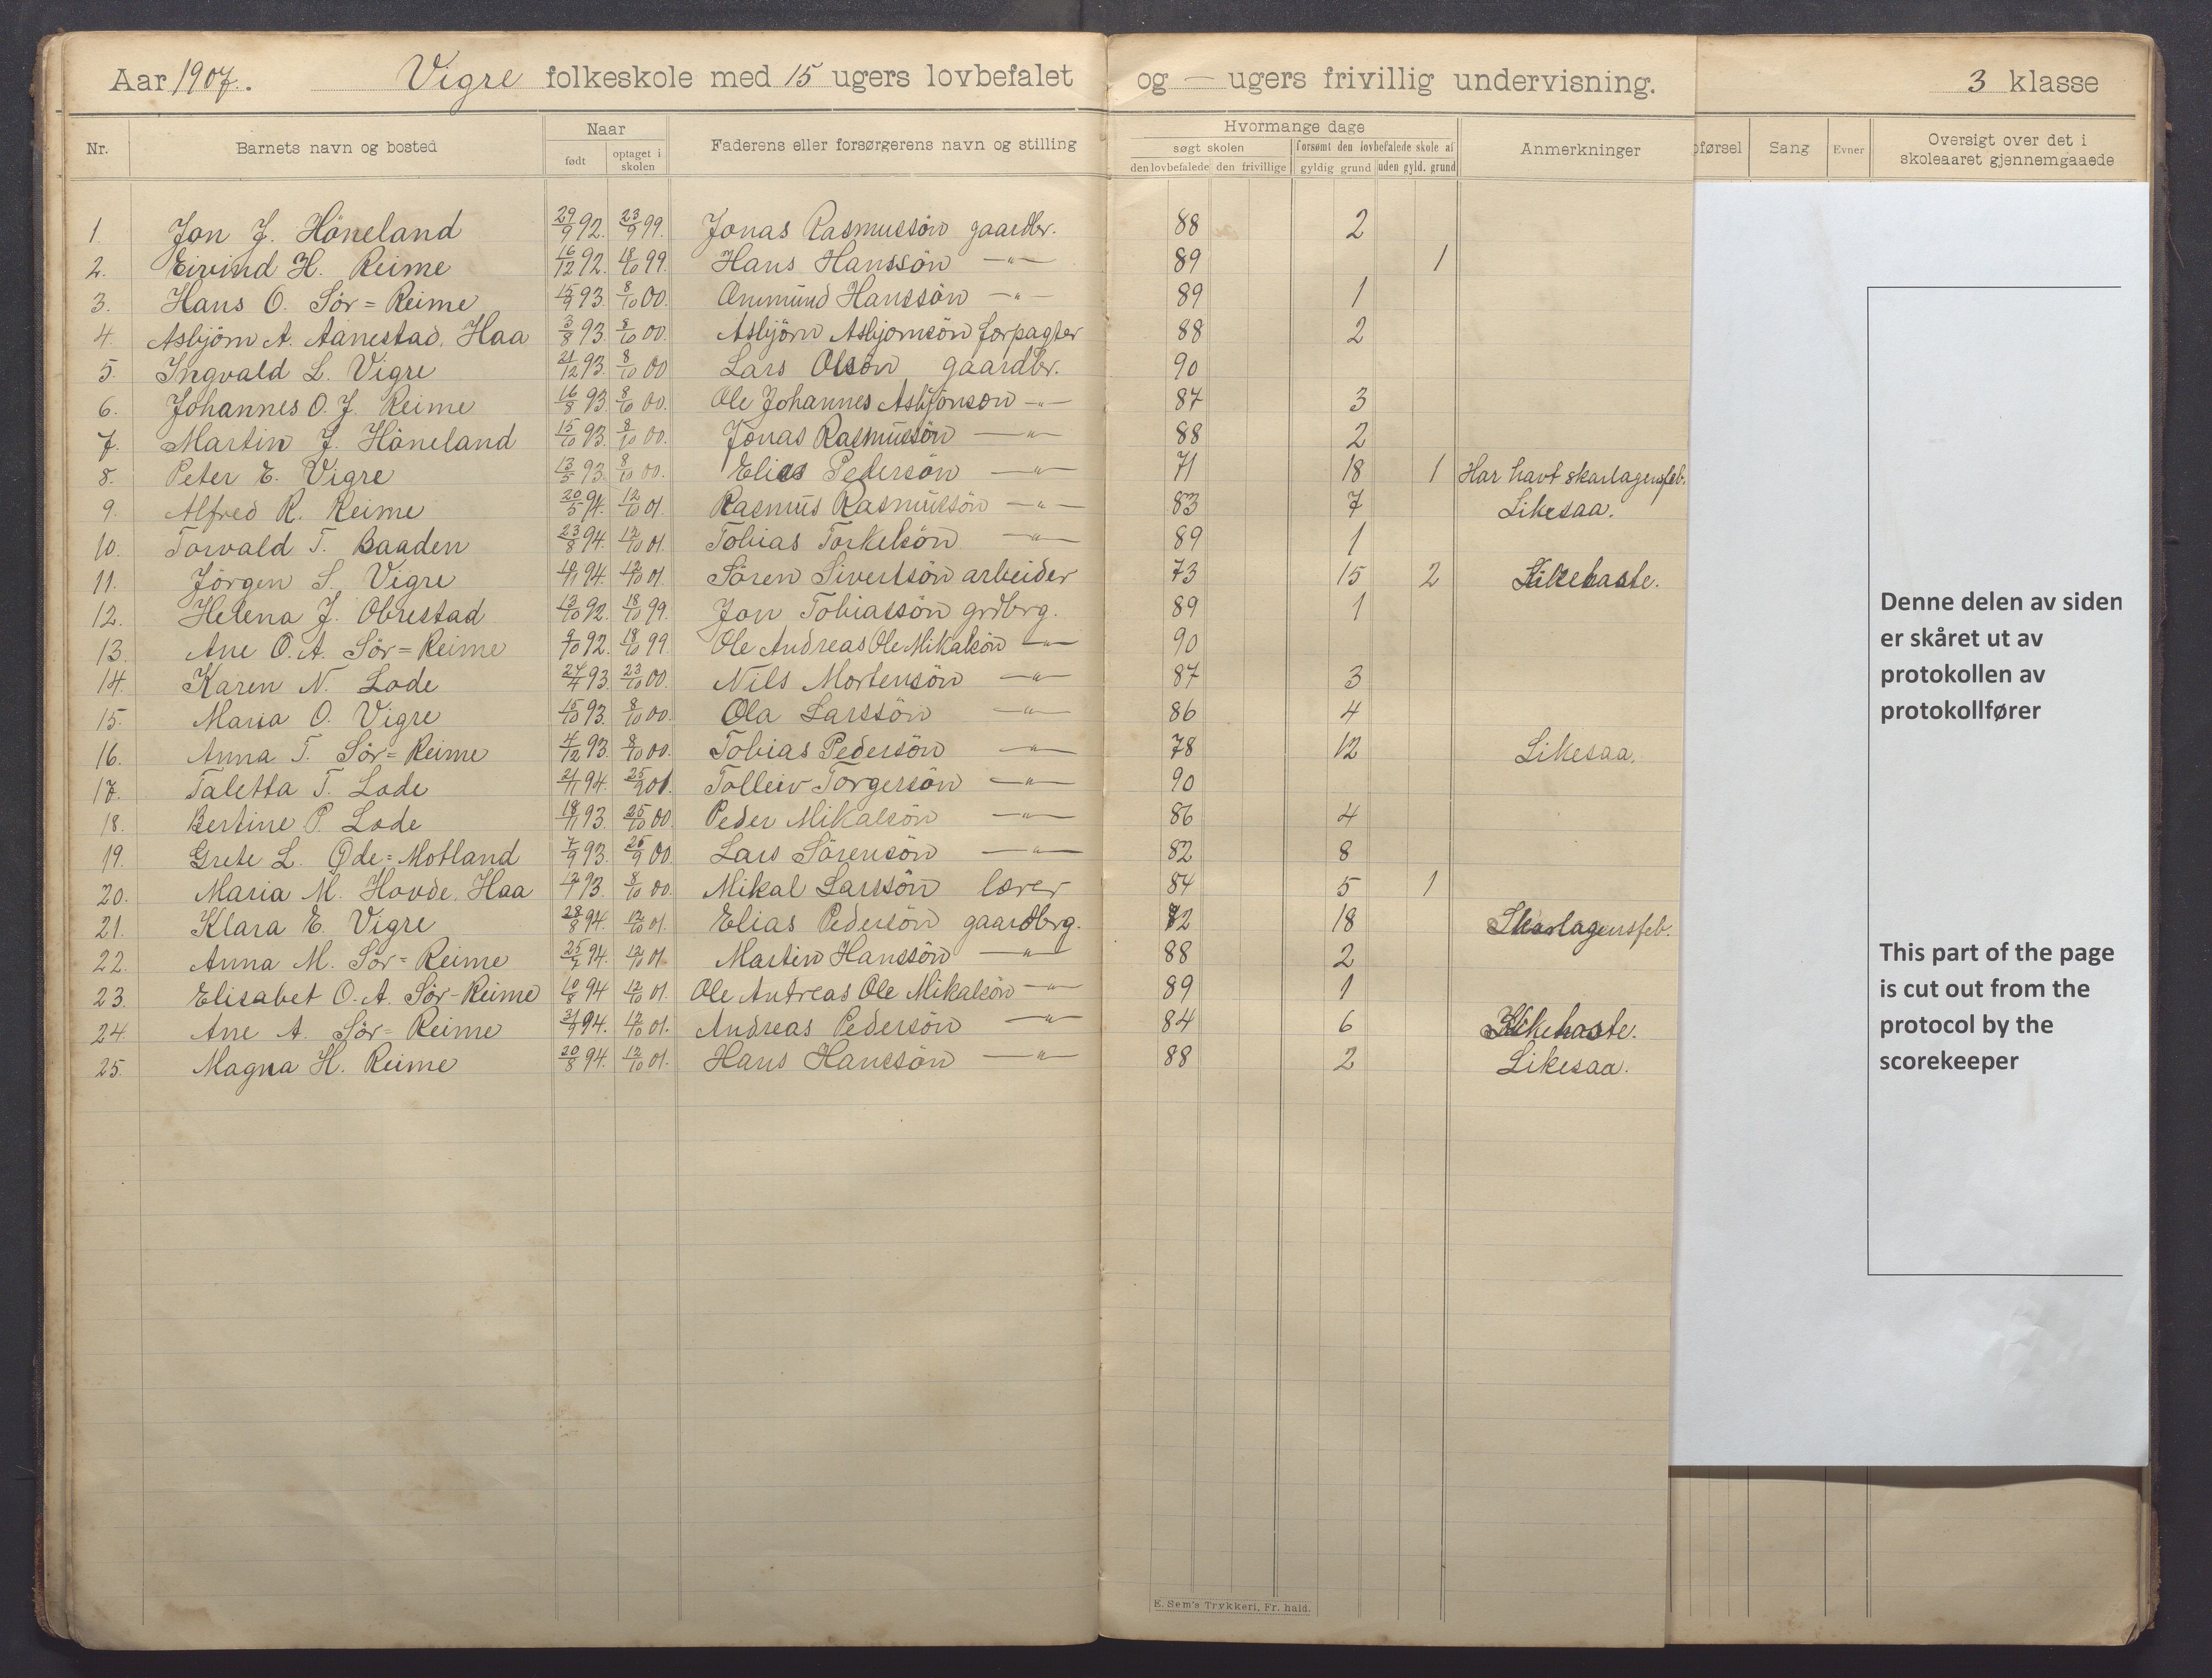 Aar 1907. Vigre folkeskole med 15 ugers lovbefalet og — ugers frivillig undervisning. 3 klasse
Nr. Barnets navn og bosted Naar født optaget i skolen Faderens eller forsørgerens navn og stilling Hvormange dage søgt skolen den lovbefalede den frivillige forsømt den lovbefalede skole af gyldig grund uden gyld. grund Anmerkninger pførsel Sang Evner Oversigt over det i skoleaaret gjennemgaaede
1. Jon J. Höneland 29/9 92. 23/9 99. Jonas Rasmussön gaardbr. 88 2
2. Eivind H. Reime 16/12 92. 18/10 99. Hans Hanssön —"— 89 1
3. Hans O. Sör=Reime 15/9 93. 8/10 00. Ommund Hanssön —"— 89 1
4. Asbjörn A. Aanestad, Haa 3/8 93. 8/10 00. Asbjörn Asbjornsön forpagter 88 2
5. Ingvald L. Vigre 21/12 93. 8/10 00 Lars Olsön gaardbr. 90
6. Johannes O. J. Reime 16/8 93. 8/10 00. Ole Johannes Asbjönson —"— 87 3
7. Martin J. Höneland 15/10 93. 8/10 00. Jonas Rasmussön —"— 88 2
8. Peter E. Vigre 13/5 93. 8/10 00. Elias Pedersön —"— 71 18 1 Har havt skarlagensfeb.
9. Alfred R. Reime 20/5 94. 12/10 01. Rasmus Rasmussön —"— 83 7 Likesaa.
10. Torvald T. Baaden 23/8 94. 12/10 01. Tobias Torkelsön —"— 89 1
11. Jörgen S. Vigre 19/11 94. 12/10 01. Sören Sivertsön arbeider 73 15 2 Kikehoste.
12. Helena J. Obrestad 13/10 92. 18/10 99. Jon Tobiassön grdbrg. 89 1
13. Ane O. A. Sör=Reime 9/10 92. 18/10 99. Ole Andreas Ole Mikalsön —"— 90
14. Karen N. Lode 27/4 93. 23/10 00. Nils Mortensön —"— 87 3
15. Maria O. Vigre 15/10 93. 8/10 00. Ola Larssön —"— 86 4
16. Anna T. Sör=Reime 4/12 93. 8/10 00. Tobias Pedersön —"— 78 12 Likesaa.
17. Taletta T. Lode 21/11 94. 25/9 01. Tolleiv Torgersön —"— 90
18. Bertine P. Lode 18/11 93. 25/10 00. Peder Mikalsön —"— 86 4
19. Grete L. Öde=Motland 7/9 93. 26/9 00. Lars Sörensön —"— 82 8
20. Maria M. Hovde, Haa 12/7 93. 8/10 00. Mikal Larssön lærer 84 5 1
21. Klara E. Vigre 28/8 94. 12/10 01. Elias Pedersön gaardbrg. 72 18 Skarlagensfeb.
22. Anna M. Sör=Reime 25/7 94. 12/10 01. Martin Hanssön —"— 88 2
23. Elisabet O. A. Sör-Reime 10/8 94 12/10 01. Ole Andreas Ole Mikalsön —"— 89 1
24. Ane A. Sör=Reime 94. 12/10 01. Andreas Pedersön —"— 84 6 Kikehoste.
25. Magna H. Reime 20/8 94. 12/10 01. Hans Hanssön —"— 88 2 Likesaa.
Denne delen av siden
er skåret ut av
protokollen av
protokollfører
This part of the page
is cut out from the
protocol by the
scorekeeper
E. Sem's Trykkeri, Fr. hald.